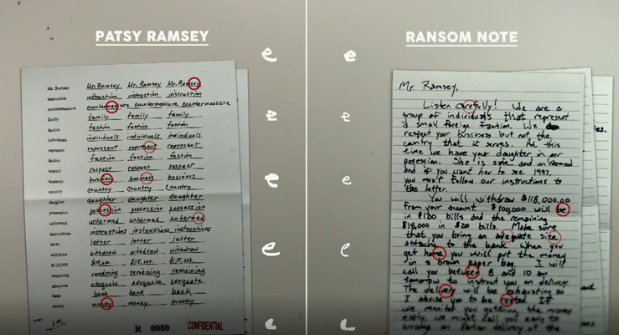 PATSY RAMSEY
Mr. Ramsey Mr. Ramsey Mr. Ramsey Mr. Ramsey
instruction instruction instruction instruction
countermeasure countermeasure countermeasure countermeasure
family family family family
faction faction faction faction
individuals individuals individuals individuals
represent represent represent represent
faction faction faction faction
respect respect respect respect
business business business business
country country country country
daughter daughter daughter daughter
possession possession possession possession
unharmed unharmed unharmed unharmed
instructions instructions instructions instructions
letter letter letter letter
withdraw withdraw withdraw withdraw
remaining remaining remaining remaining
adequate adequate adequate adequate
bank bank bank bank
money money money money
R 0080 CONFIDENTIAL
e
e
e
e
e
RANSOM NOTE
e
e
e
e
e
Mr. Ramsey,
Listen carefully! We are a
group of individuals that represent
a small foreign faction. We
respect your bussiness but not the
country that it serves. At this
time we have your daughter in our
posession. She is safe and unharmed
and if you want her to see 1997,
you must follow our instructions to
the letter.
You will withdraw $118,000.00
from your account. $100,000 will be
in $100 bills and the remaining
$18,000 in $20 bills. Make sure
that you bring an adequate size
attache to the bank. When you
get home you will put the money
in a brown paper bag. I will
call you between 8 and 10 am
tomorrow to instruct you on delivery.
The delivery will be exhausting so
I advise you to be rested. If
we monitor you getting the money
early, we might call you early to
arrange an earlier delivery of the